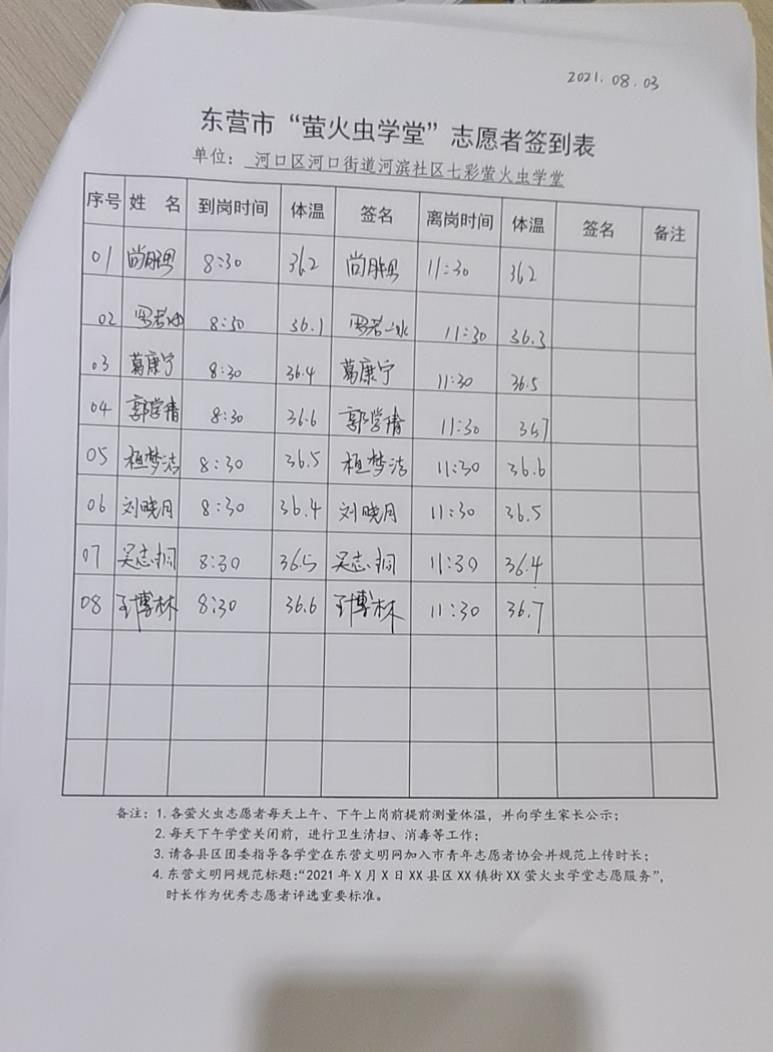 2021.08.03
东营市“萤火虫学堂”志愿者签到表
单位: 河口区河口街道河滨社区七彩萤火虫学堂
序号 姓 名 到岗时间 体温 签名 离岗时间 体温 签名 备注
01 8:30 362 11:30 362
02 8:30 36.1 11:30 36.3
03 葛康宁 8:30 36.4 葛康宁 11:30 36.5
04 郭学倩 8:30 36.6 郭学倩 11:30 367
05 8:30 36.5 11:30 36.6
06 刘晓月 8:30 36.4 刘晓月 11:30 36.5
07 8:30 36.5 11:30 36.4
08 王博林 8:30 36.6 王博林 11:30 36.7
备注: 1. 各萤火虫志愿者每天上午、下午上岗前提前测量体温，并向学生家长公示；
2. 每天下午学堂关闭前，进行卫生清扫、消毒等工作；
3. 请各县区团委指导各学堂在东营文明网加入市青年志愿者协会并规范上传时长；
4. 东营文明网规范标题:“2021 年 X 月 X 日 XX 县区 XX 镇街 XX 萤火虫学堂志愿服务”，
时长作为优秀志愿者评选重要标准。